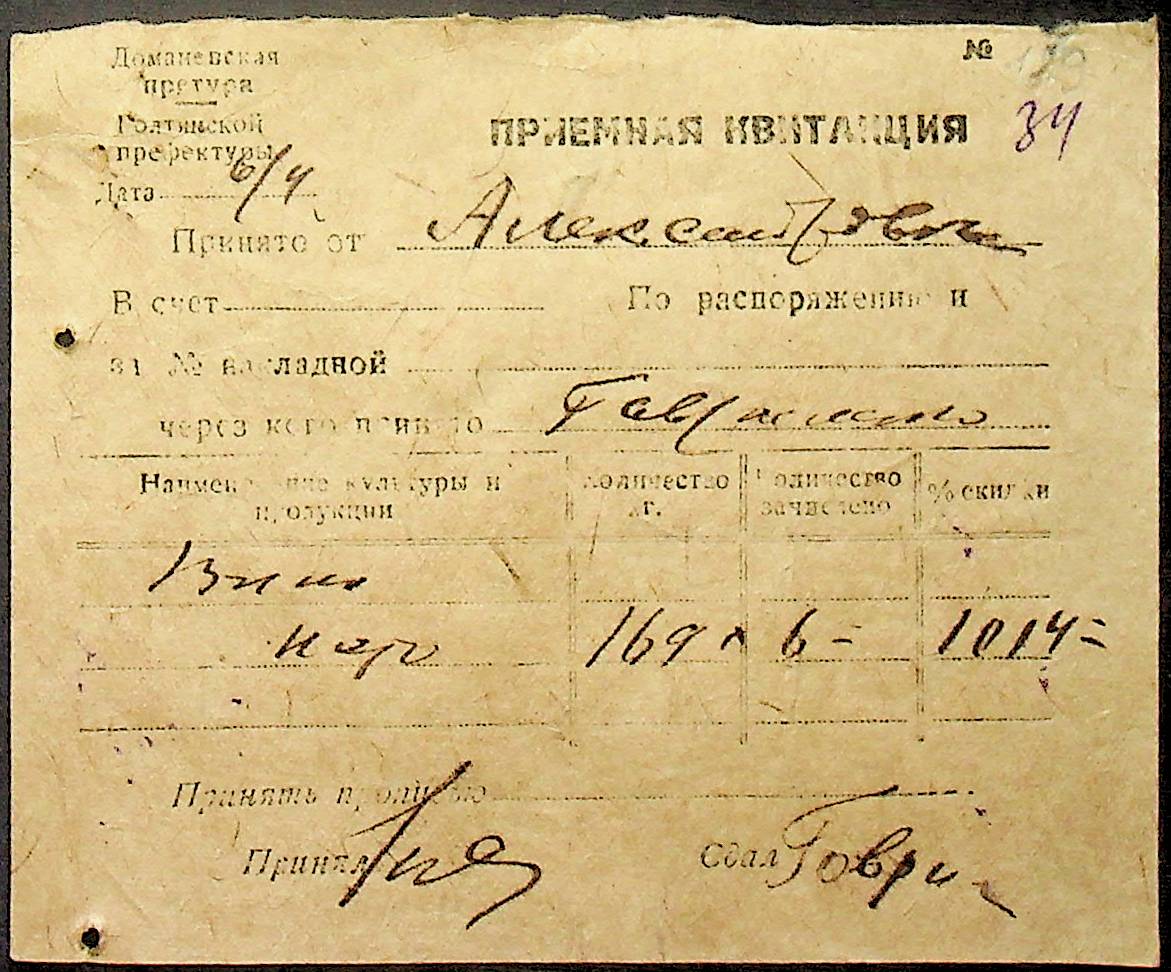 Доманевская
претура
Голтянской
префектуры
№
34
ПРИЕМНАЯ КВИТАНЦИЯ
Дата 6/4
Принято от Александровки
В счет По распоряжению и
за № накладной
через кого принято
Наименование культуры и продукции Количество кг. Количество зачислено % скидки
Вино
169 × 6 = 1014 =
Принять прописью
Принял Сдал Гаври